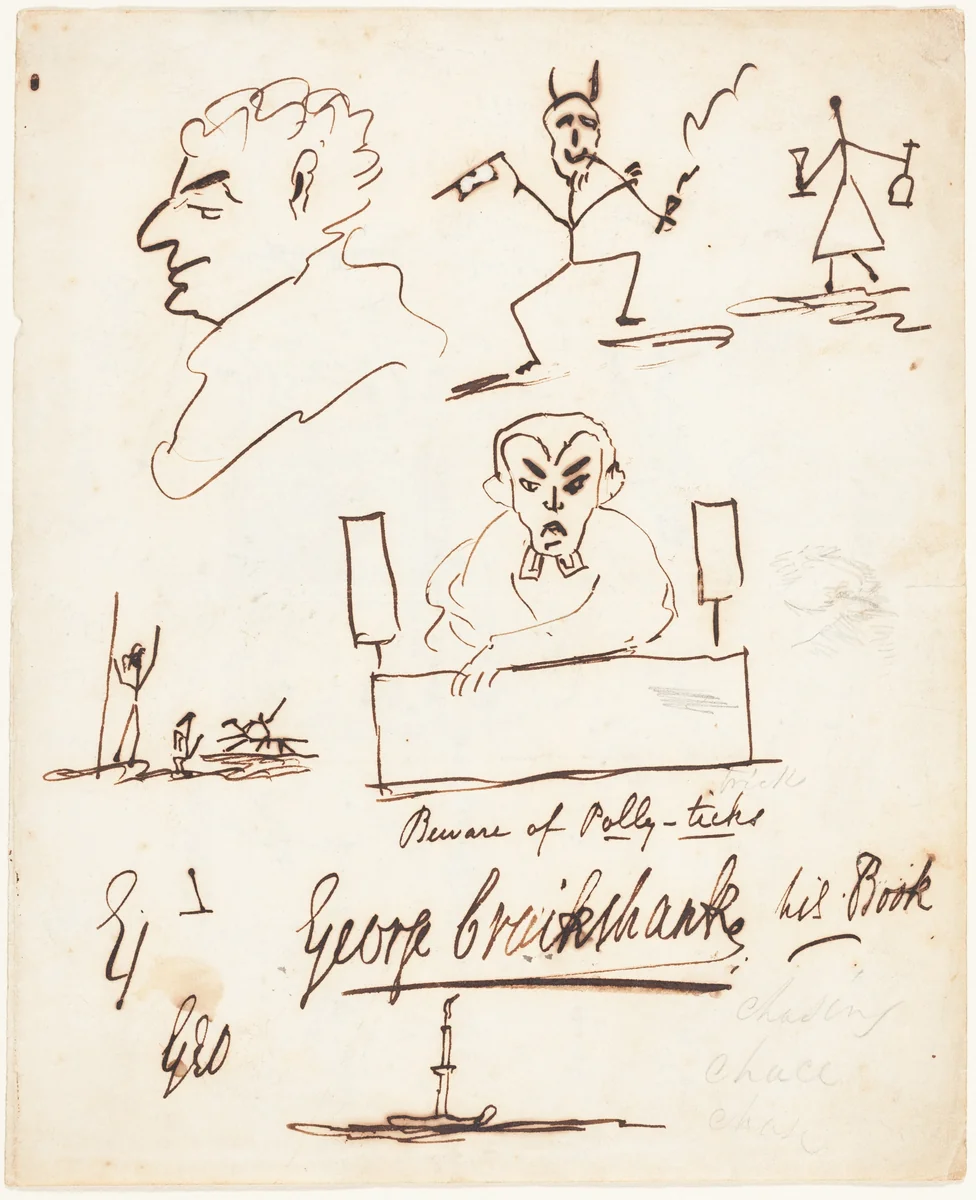 trick
Beware of Polly-ticks
George Cruikshank, his Book
Geo
chasing
chace